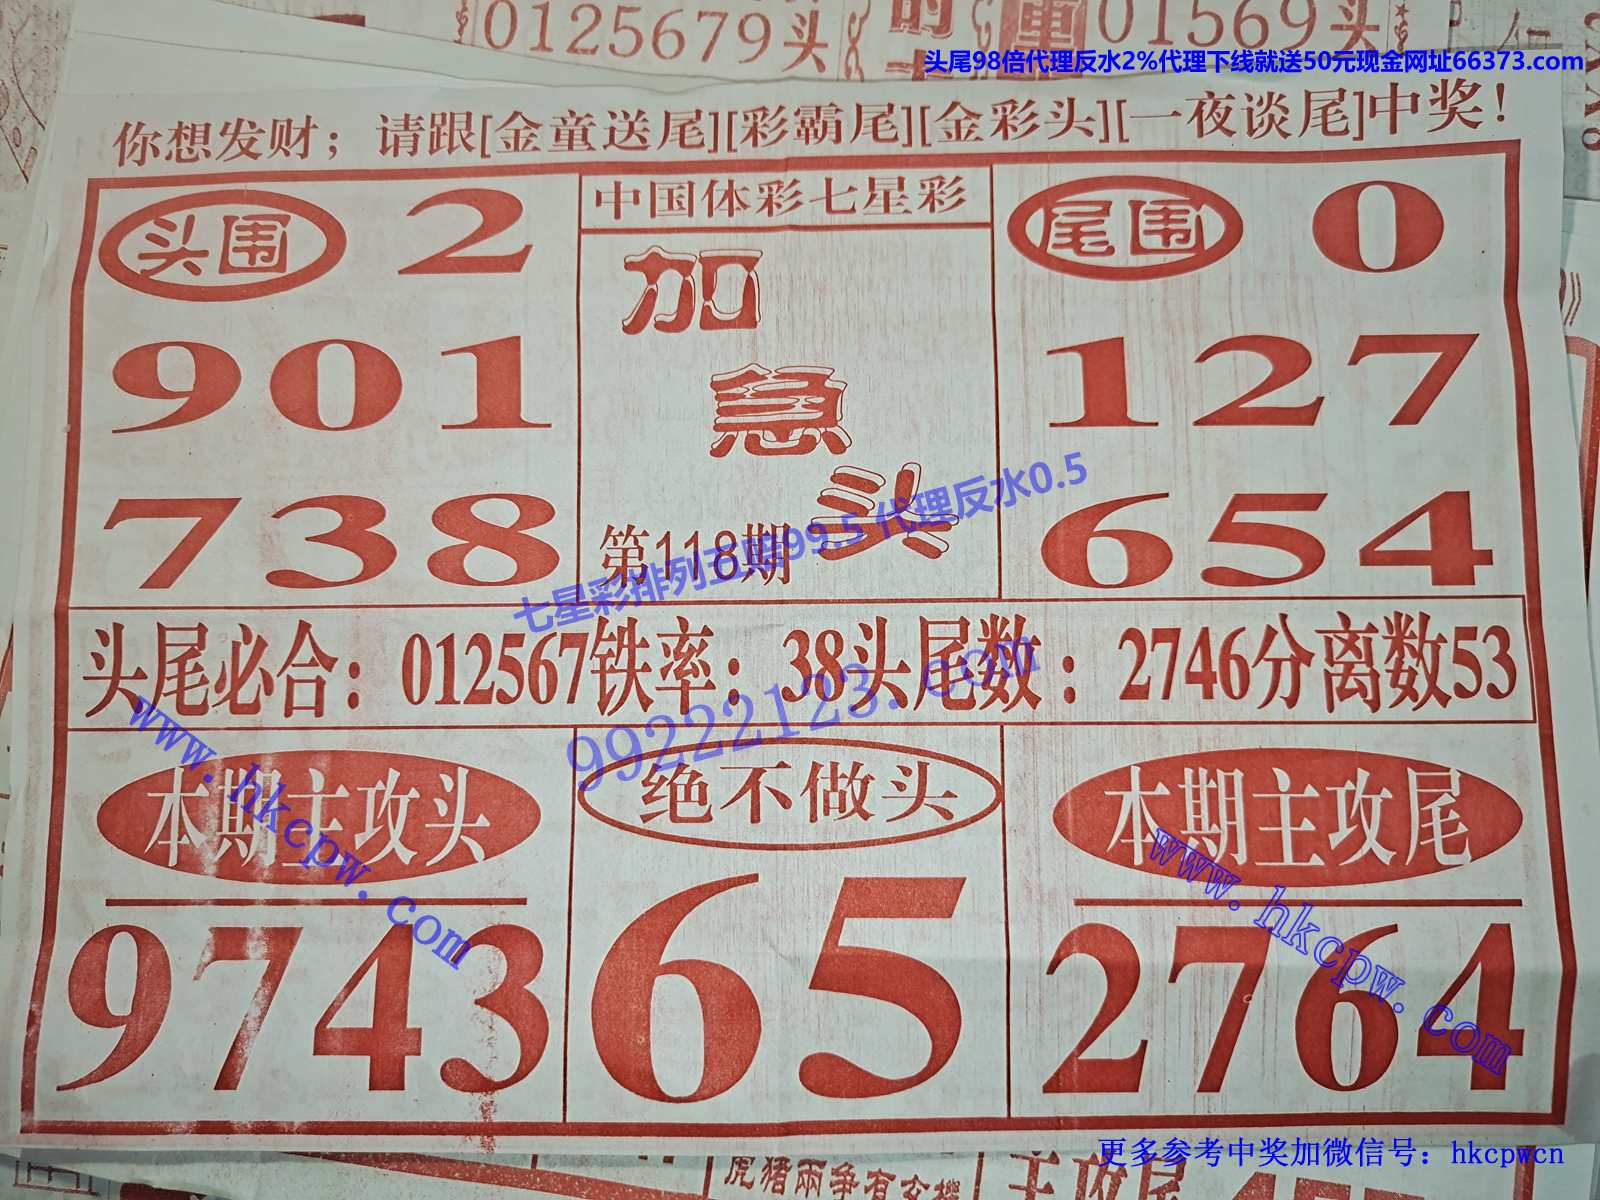 0125679头
01569头
头尾98倍代理反水2%代理下线就送50元现金网址66373.com
你想发财；请跟[金童送尾][彩霸尾][金彩头][一夜谈尾]中奖！
头围 2
901
738
中国体彩七星彩
加
急
头
第118期
尾围 0
127
654
七星彩排列五赔99.5 代理反水0.5
头尾必合：012567铁率：38头尾数：2746分离数53
99222123.com
www.hkcpw.com
本期主攻头
9743
绝不做头
65
本期主攻尾
2764
www.hkcpw.com
更多参考中奖加微信号：hkcpwcn
虎猪兩争有玄機
主攻尾